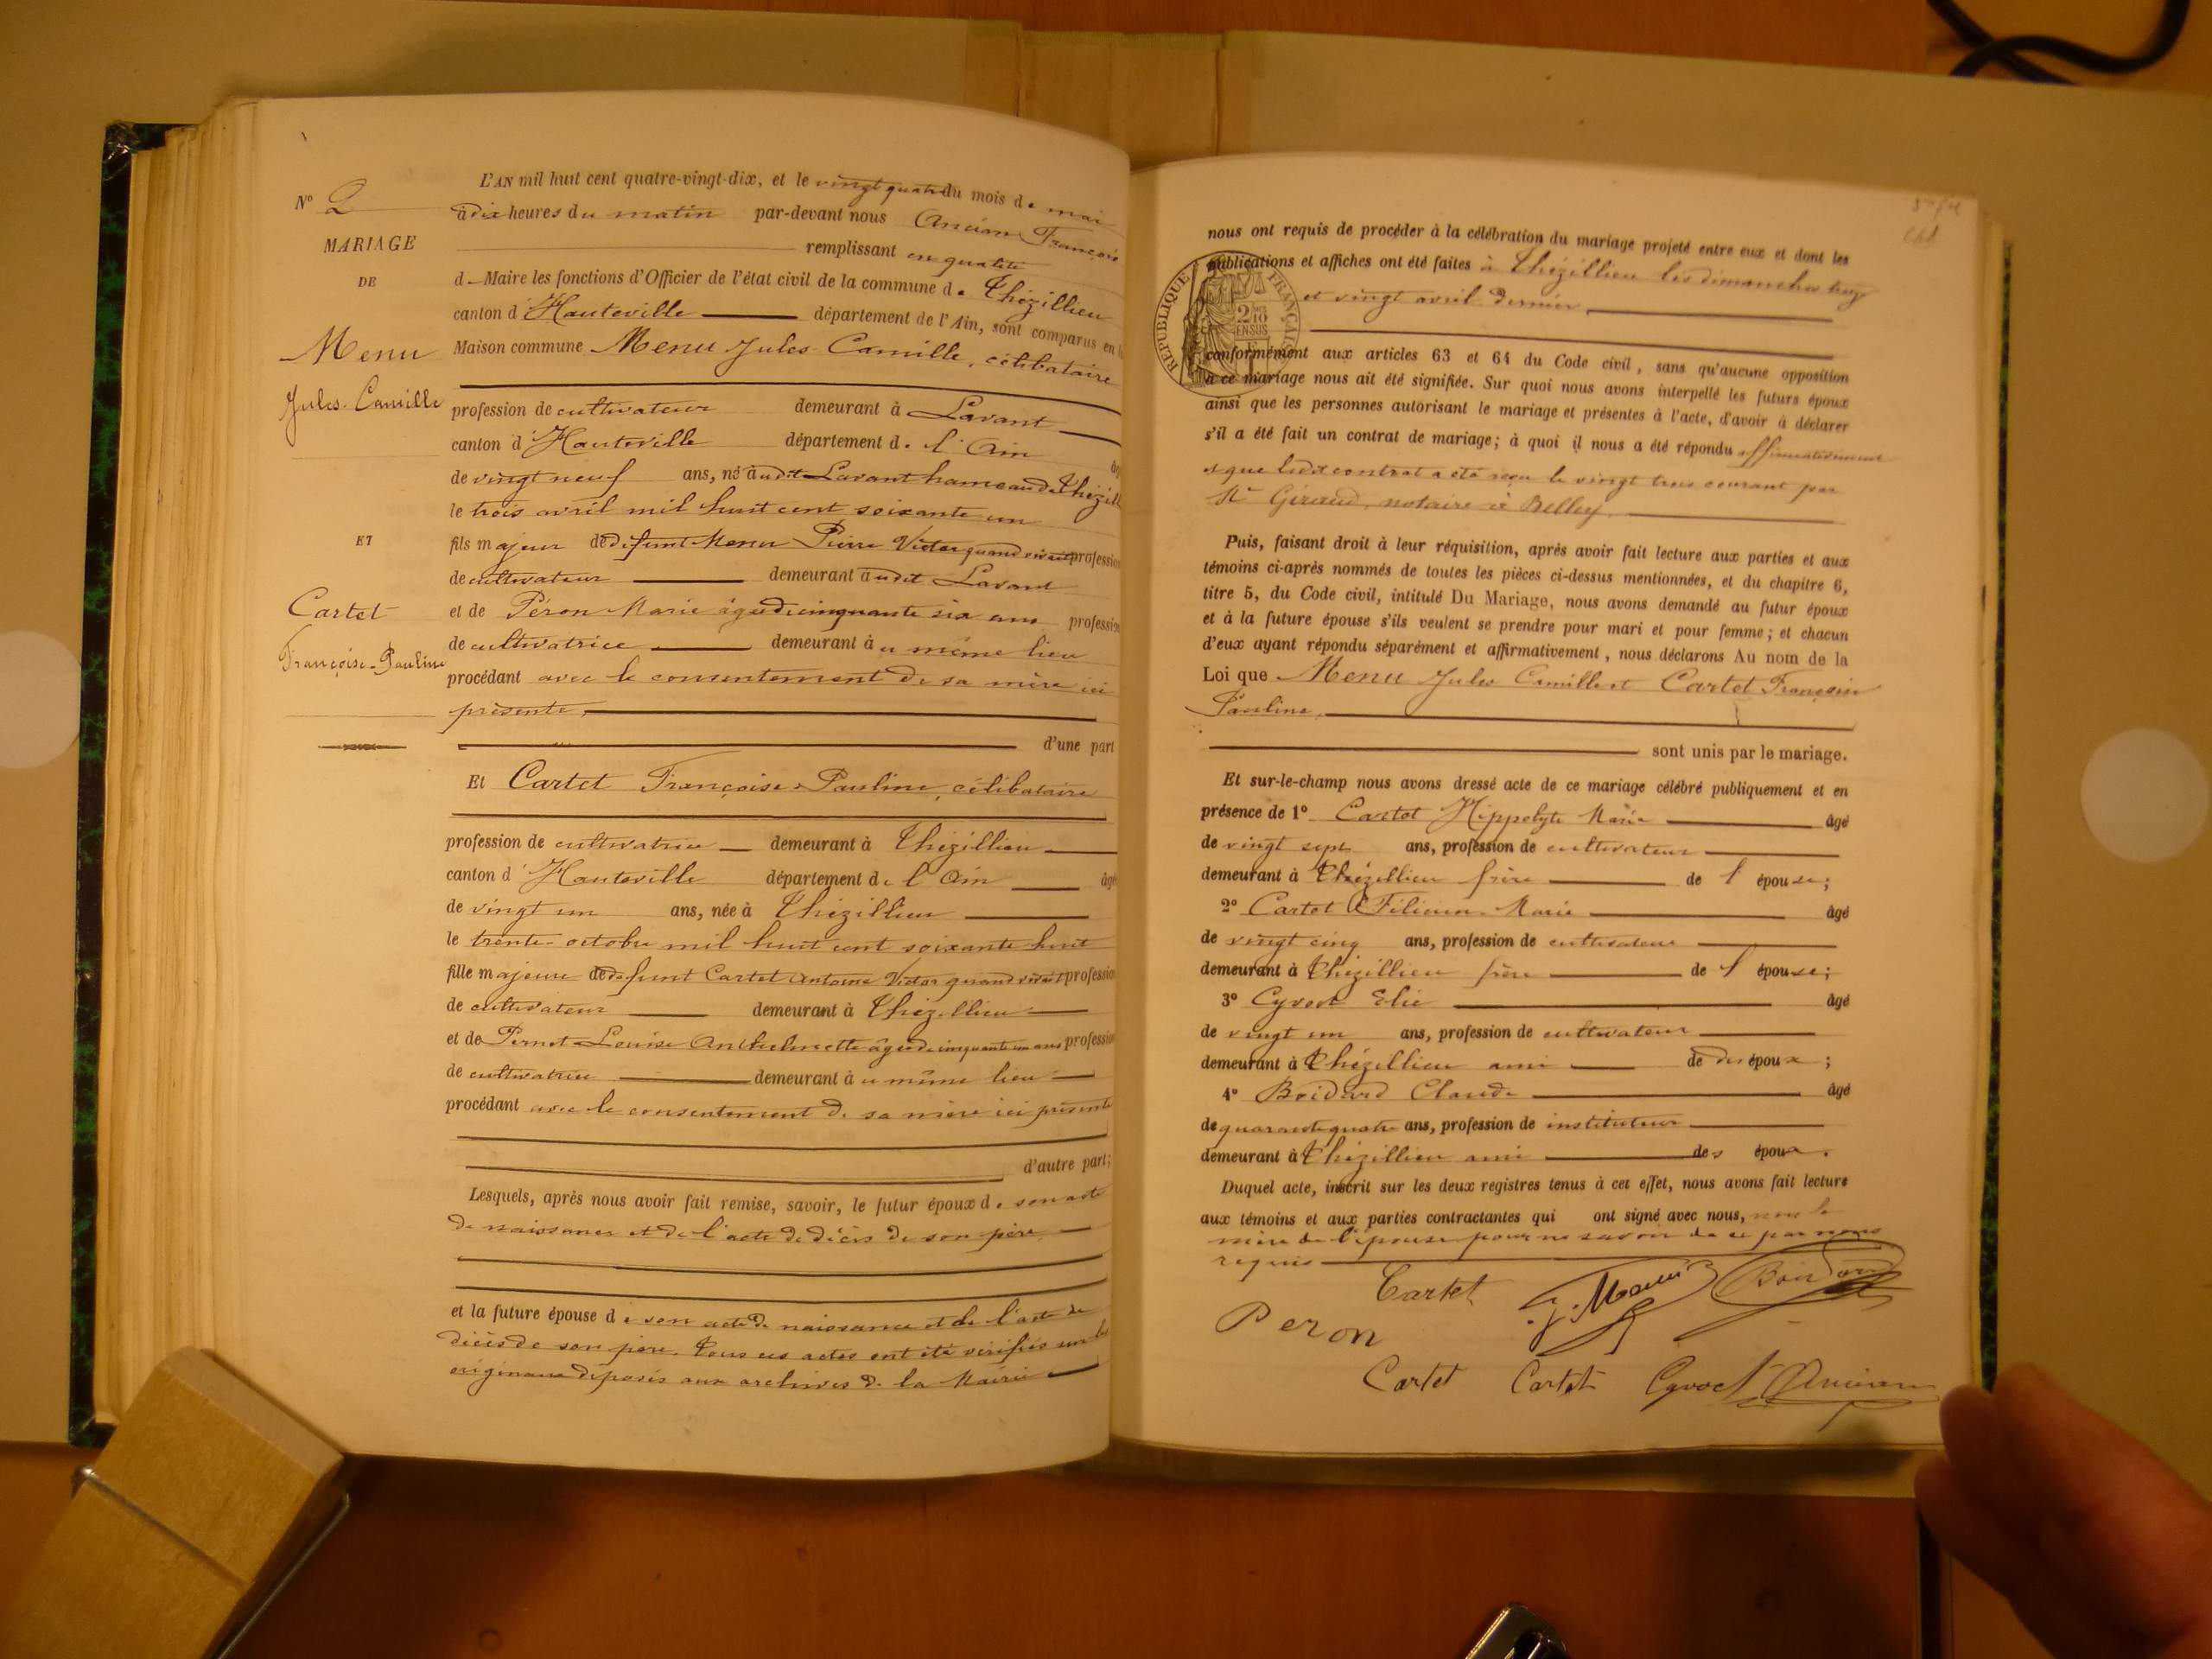 L'AN mil huit cent quatre-vingt-dix, et le vingt quatre du mois de mai
à dix heures du matin par-devant nous Ancian François
remplissant en qualité
d Maire les fonctions d'Officier de l'état civil de la commune de Thézillieu
canton d'Hauteville département de l'Ain, sont comparus en
Maison commune Menu Jules Camille, célibataire
profession de cultivateur demeurant à Lavant
canton d'Hauteville département de l'Ain
de vingt neuf ans, né audit Lavant hameau de Thézill
le trois avril mil huit cent soixante un
fils majeur de défunt Menu Pierre Victor quand vivait profession
de cultivateur demeurant audit Lavant
et de Péron Marie âgée de cinquante six ans profession
de cultivatrice demeurant au même lieu
procédant avec le consentement de sa mère ici
présente,
d'une part
Et Cartet Françoise-Pauline, célibataire
profession de cultivatrice demeurant à Thézillieu
canton d'Hauteville département de l'Ain âgé
de vingt un ans, née à Thézillieu
le trente octobre mil huit cent soixante huit
fille majeure de défunt Cartet Antoine Victor quand vivait profession
de cultivateur demeurant à Thézillieu
et de Pernet Louise Anthelmette âgée de cinquante un ans profession
de cultivatrice demeurant au même lieu
procédant avec le consentement de sa mère ici présente
d'autre part;
Lesquels, après nous avoir fait remise, savoir, le futur époux de son acte
de naissance et de l'acte de décès de son père,
et la future épouse de son acte de naissance et de l'acte de
décès de son père. Tous ces actes ont été vérifiés sur les
originaux déposés aux archives de la Mairie
N° 2
MARIAGE
DE
Menu
Jules-Camille
ET
Cartet
Françoise-Pauline
nous ont requis de procéder à la célébration du mariage projeté entre eux et dont les
publications et affiches ont été faites à Thézillieu les dimanches treize
et vingt avril dernier
RÉPUBLIQUE FRANÇAISE
2/10 EN SUS
conformément aux articles 63 et 64 du Code civil, sans qu'aucune opposition
à ce mariage nous ait été signifiée. Sur quoi nous avons interpellé les futurs époux
ainsi que les personnes autorisant le mariage et présentes à l'acte, d'avoir à déclarer
s'il a été fait un contrat de mariage; à quoi il nous a été répondu affirmativement
et que ledit contrat a été reçu le vingt trois courant par
Me Giraud, notaire à Belley.
Puis, faisant droit à leur réquisition, après avoir fait lecture aux parties et aux
témoins ci-après nommés de toutes les pièces ci-dessus mentionnées, et du chapitre 6,
titre 5, du Code civil, intitulé Du Mariage, nous avons demandé au futur époux
et à la future épouse s'ils veulent se prendre pour mari et pour femme; et chacun
d'eux ayant répondu séparément et affirmativement, nous déclarons Au nom de la
Loi que Menu Jules Camille et Cartet Françoise
Pauline,
sont unis par le mariage.
Et sur-le-champ nous avons dressé acte de ce mariage célébré publiquement et en
présence de 1° Cartet Hippolyte Marie âgé
de vingt sept ans, profession de cultivateur
demeurant à Thézillieu frère de l'épouse;
2° Cartet Félicien Marie âgé
de vingt cinq ans, profession de cultivateur
demeurant à Thézillieu frère de l'épouse;
3° Cyvoct Elie âgé
de vingt un ans, profession de cultivateur
demeurant à Thézillieu ami de des époux;
4° Boidard Claude âgé
de quarante quatre ans, profession de instituteur
demeurant à Thézillieu ami des époux.
Duquel acte, inscrit sur les deux registres tenus à cet effet, nous avons fait lecture
aux témoins et aux parties contractantes qui ont signé avec nous, non la
mère de l'épouse pour ne savoir de ce par nous
requis
Cartet J. Menu Boidard
Peron
Cartet Cartet Cyvoct Ancian